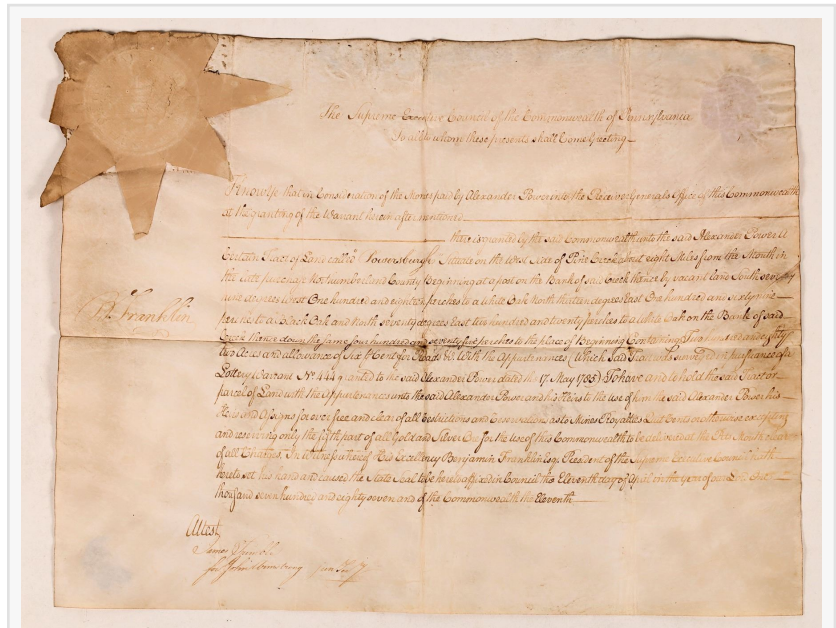 The Supreme Executive Council of the Commonwealth of Pennsylvania
To all to whom these presents shall Come Greeting
Know Ye that in Consideration of the Money paid by Alexander Power into the Receiver Generals Office of this Commonwealth
at the granting of the Warrant herein after mentioned
there is granted by the said Commonwealth unto the said Alexander Power A
Certain Tract of Land called Powersburgh Situate on the West Side of Pine Creek about eight Miles from the Mouth in
the late purchase Northumberland County Beginning at a post on the Bank of said Creek thence by vacant land South seventy
degrees West One hundred and eighteen perches to a White Oak North thirteen degrees East One hundred and sixty nine
B. Franklin
perches to a Black Oak and North seventy degrees East two hundred and twenty perches to a White Oak on the Bank of said
Creek thence down the same four hundred and seventy five perches to the Place of Beginning Containing Two hundred and
two Acres and allowance of Six P Cent for Roads &c With the Appurtenances (Which said Tract was surveyed in pursuance of a
Lottery Warrant No. 444 granted to the said Alexander Power dated the 17 May 1785) To have and to hold the said Tract or
parcel of Land with the Appurtenances unto the said Alexander Power and his Heirs to the use of him the said Alexander Power his
Heirs and Assigns for ever free and clear of all Restrictions and Reservations as to Mines Royalties Quit Rents or otherwise excepting
and reserving only the fifth part of all Gold and Silver Ore for the Use of this Commonwealth to be delivered at the Pits Mouth clear
of all Charges. In witness whereof His Excellency Benjamin Franklin Esqr. President of the Supreme Executive Council hath
hereto set his hand and caused the State Seal to be hereto affixed in Council the Eleventh day of April in the year of our Lord One
thousand seven hundred and eighty seven and of the Commonwealth the Eleventh
Attest
James Trimble
for John Armstrong Jun Secy